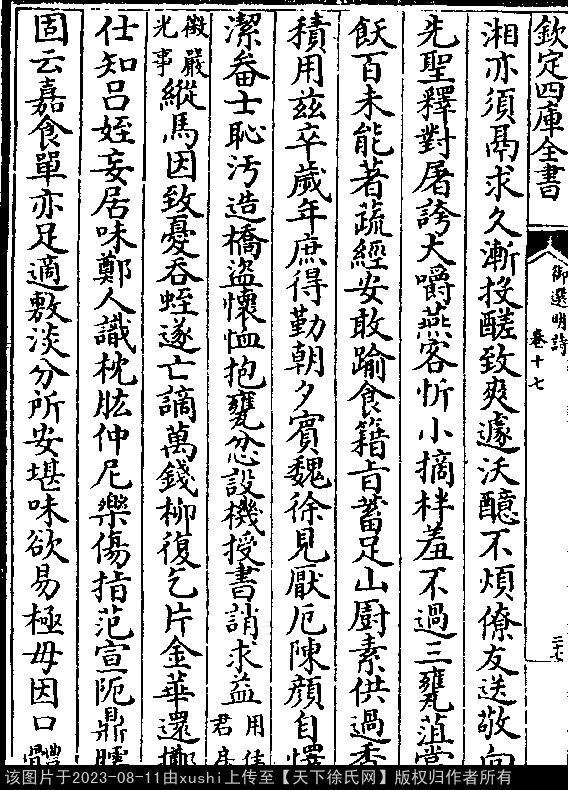 欽定四庫全書
御選明詩
卷十七
三七
湘亦須鬲求久漸投醝致爽遽沃醷不煩僚友送敬向
先聖釋對屠誇大嚼燕客忻小摘柈羞不過三甕菹嘗
飫百未能著蔬經安敢踰食籍旨蓄足山廚素供過香
積用兹卒歲年庶得勤朝夕賓魏徐見厭厄陳顔自懌
潔畚士恥汚造橋盜懷恤抱甕忿設機授書誚求益
用佳
君房
徵嚴
光事
縱馬因致憂吞蛭遂亡謫萬錢柳復乞片金華還擲
仕知吕姪妄居味鄭人識枕肱仲尼樂傷指范宣阨鼎臑
固云嘉食單亦足適敷淡分所安堪味欲易極毋因口
體
该图片于2023-08-11由xushi上传至【天下徐氏网】版权归作者所有